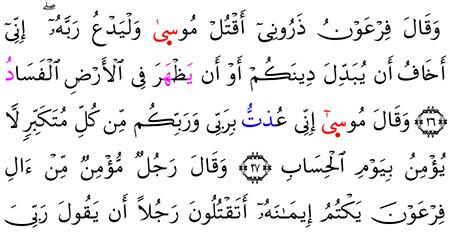 وَقَالَ فِرْعَوْنُ ذَرُونِيٓ أَقْتُلْ مُوسىٰ وَلْيَدْعُ رَبَّهُۥٓۖ إِنِّيٓ
أَخَافُ أَن يُبَدِّلَ دِينَكُمْ أَوْ أَن يَظْهَرَ فِى الْأَرْضِ الْفَسَادُ
﴿٢٦﴾ وَقَالَ مُوسىٰٓ إِنِّى عُذتُّ بِرَبِّى وَرَبِّكُم مِّن كُلِّ مُتَكَبِّرٍ لَّا
يُؤْمِنُ بِيَوْمِ الْحِسَابِ ﴿٢٧﴾ وَقَالَ رَجُلٌ مُّؤْمِنٌ مِّنْ ءَالِ
فِرْعَوْنَ يَكْتُمُ إِيمَـٰنَهُۥٓ أَتَقْتُلُونَ رَجُلاً أَن يَقُولَ رَبِّىَ